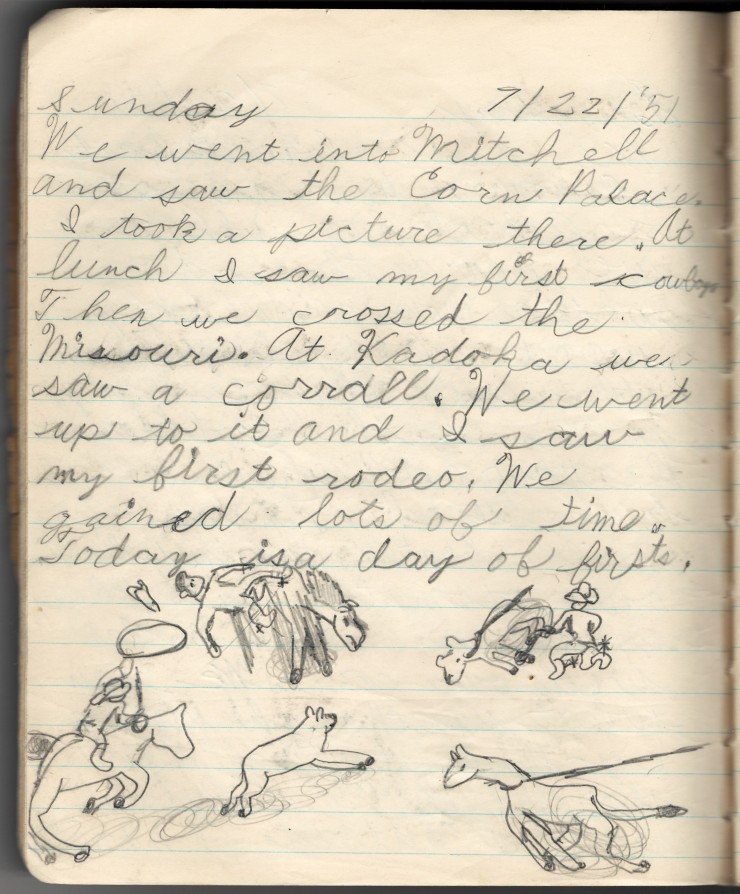 Sunday 7/22/'51
We went into Mitchell
and saw the Corn Palace.
I took a picture there. At
lunch I saw my first cowboy
Then we crossed the
Missouri. At Kadoka we
saw a corrall. We went
up to it and I saw
my first rodeo. We
gained lots of time.
Today is a day of firsts.